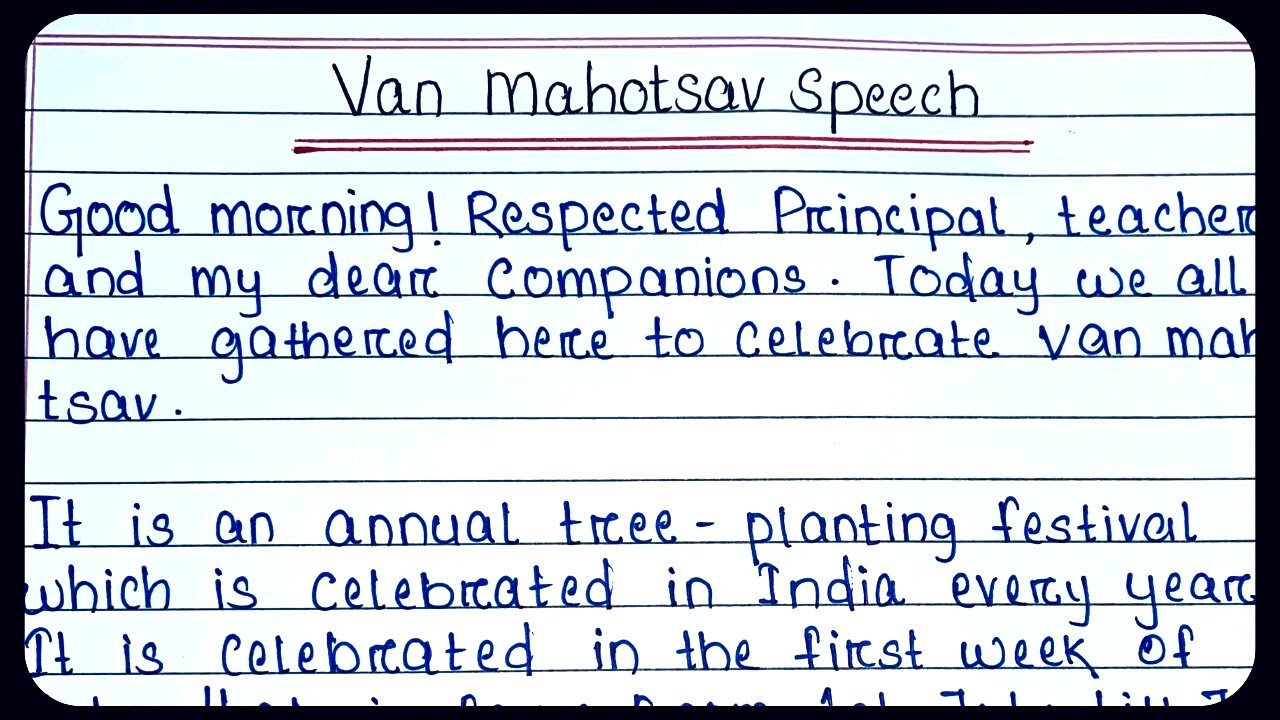 Van Mahotsav Speech
Good morning! Respected Principal, teacher
and my dear companions. Today we all
have gathered here to celebrate van mah
tsav.
It is an annual tree-planting festival
which is celebrated in India every year
It is celebrated in the first week of